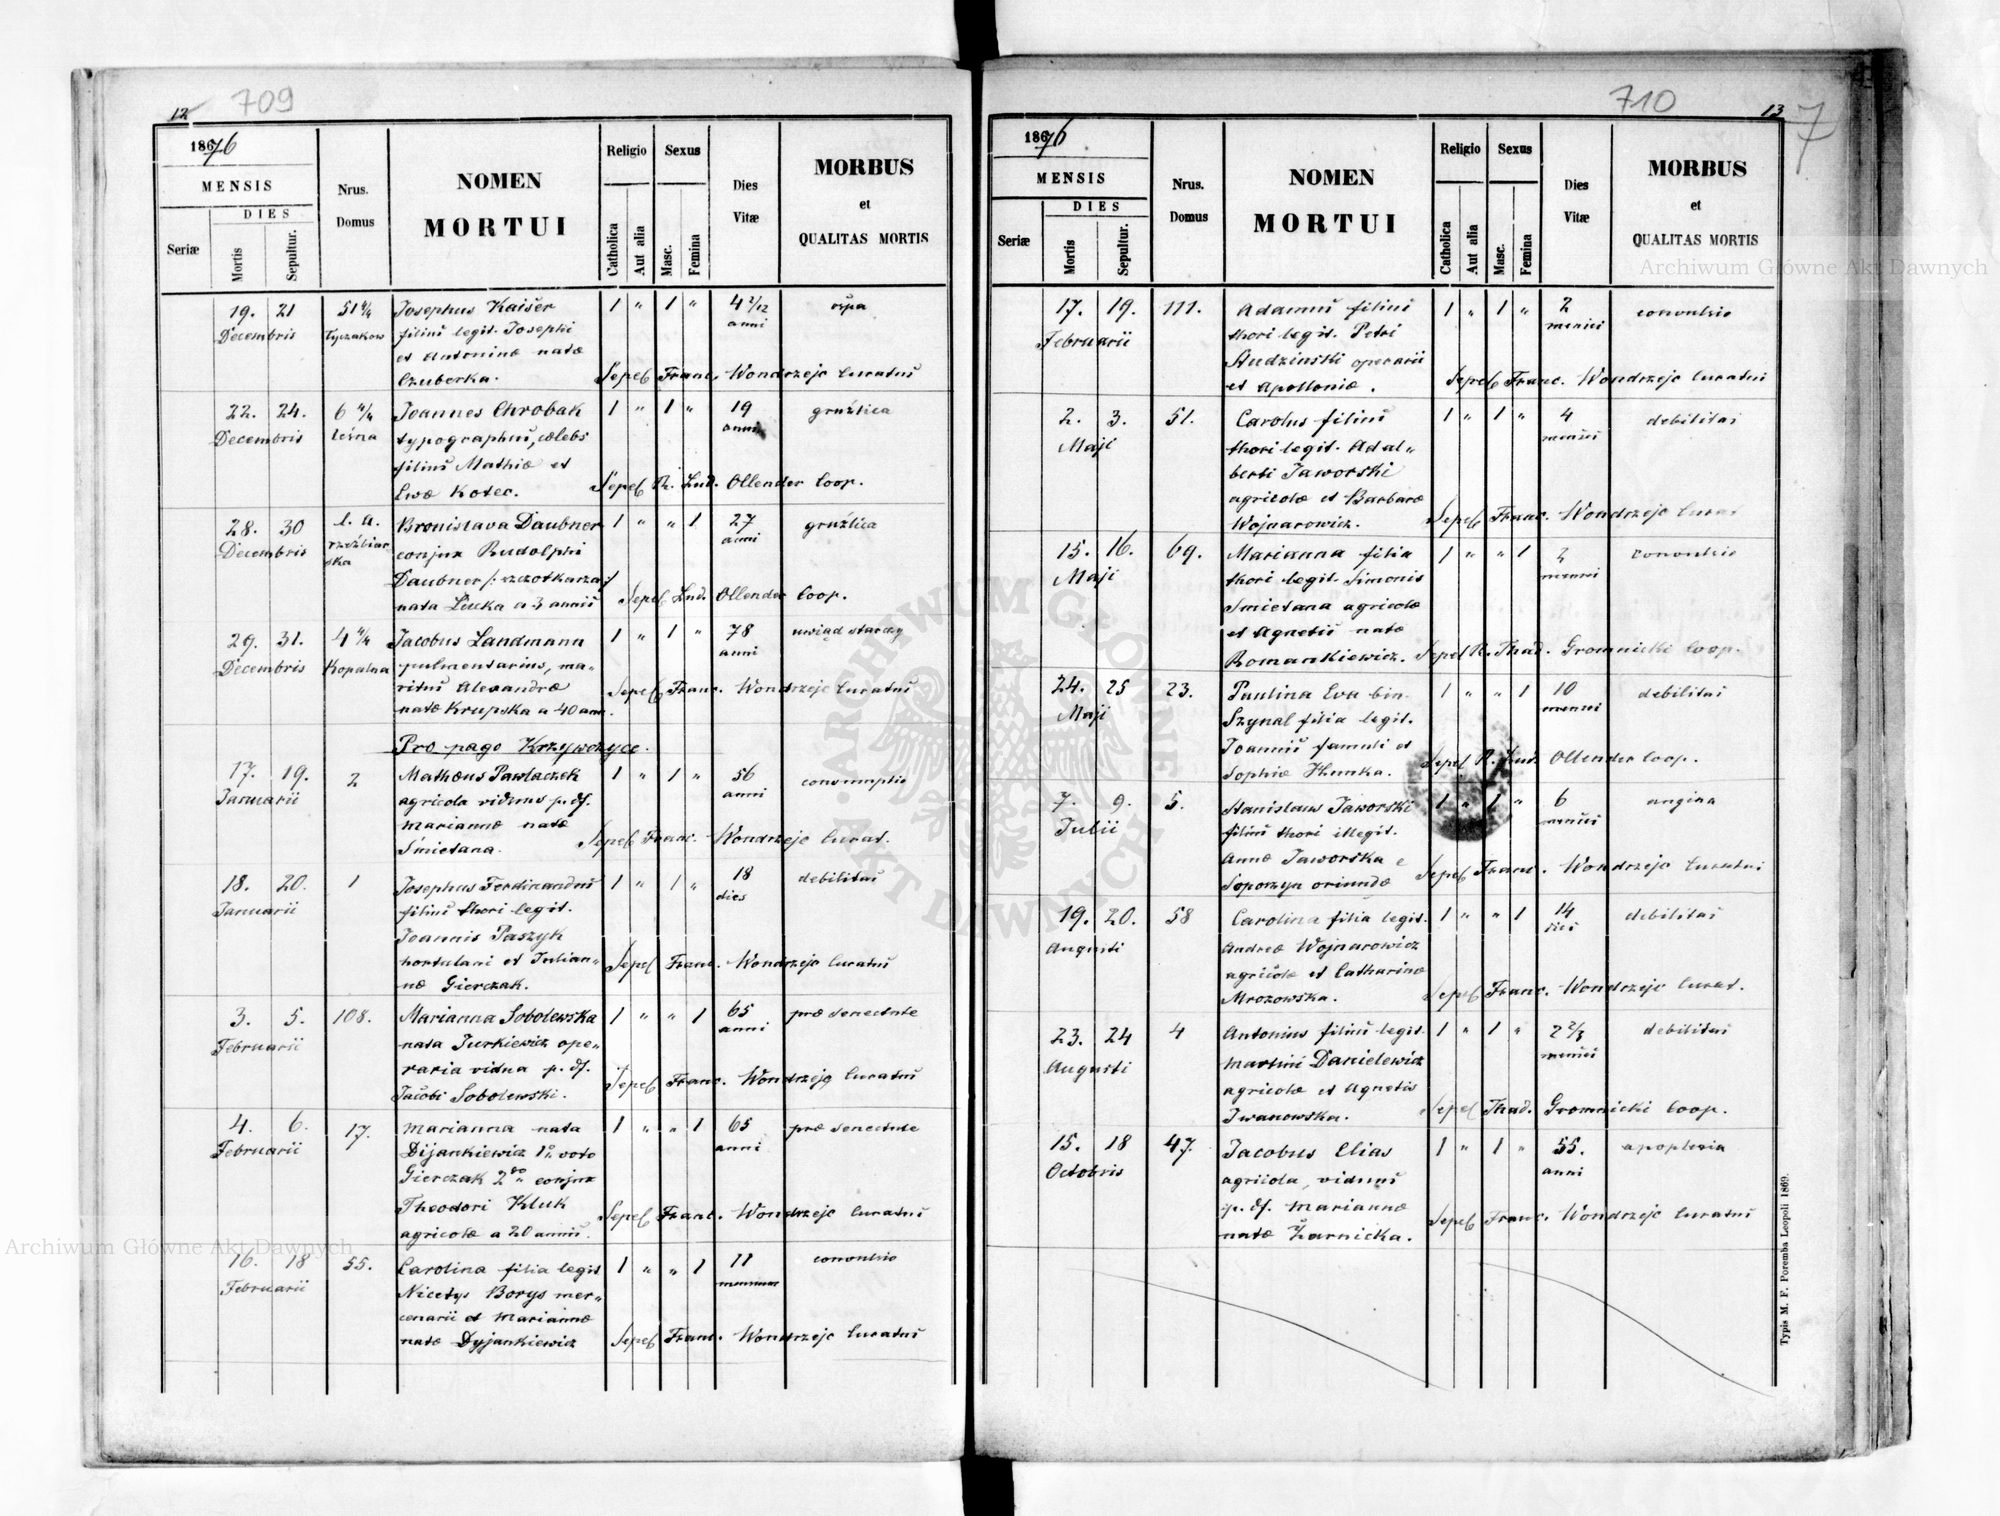 12
709
18676
MENSIS
DIES
Seriæ
Mortis
Sepultur.
Nrus.
Domus
NOMEN
MORTUI
Religio
Sexus
Catholica
Aut alia
Masc.
Femina
Dies
Vitæ
MORBUS
et
QUALITAS MORTIS
19. 21 51 4/4 Josephus Kaiser 1 " 1 " 4 2/12 ospa
Decembris Łyczakow filius legit. Josephi anni
et Antoninæ natæ
Czuberka. Sepel. Franc. Wondrzejc Curatus
22. 24. 6 4/4 Joannes Chrobak 1 " 1 " 19 gruźlica
Decembris leśna typographus, cœlebs anni
filius Mathiæ et
Evæ Kotec. Sepel R. Lud. Ollender Coop.
28. 30 l. a. Bronislava Daubner 1 " " 1 27 gruźlica
Decembris rzeźbiar- conjux Rudolphi anni
ska
Daubner /: szczotkarza :/
nata Lucka a 3 annis Sepel Lud. Ollender Coop.
29. 31. 4 4/4 Jacobus Landmann 1 " 1 " 78 uwiąd starczy
Decembris Kopalna pulmentarius, ma- anni
ritus Alexandræ Sepel Franc. Wondrzejc Curatus
natæ Krupska a 40 ann.
Pro pago Krzywczyce.
17. 19. 2 Mathæus Pawlaczek 1 " 1 " 56 consumptio
Januarii agricola viduus p. df. anni
Mariannæ natæ
Smietana. Sepel Franc. Wondrzejc Curat.
18. 20. 1 Josephus Ferdinandus 1 " 1 " 18 debilitas
Januarii filius thori legit. dies
Joannis Paszyk
hortulani et Julian-
næ Gierczak. Sepel Franc. Wondrzejc Curatus
3. 5. 108. Marianna Sobolewska 1 " " 1 65 præ senectute
Februarii nata Jurkiewicz ope- anni
raria vidua p. df.
Jacobi Sobolewski. Sepel Franc. Wondrzejc Curatus
4. 6. 17. Marianna nata 1 " " 1 65 præ senectute
Februarii Dijankiewicz 1º voto anni
Gierczak 2do conjux
Theodori Kluk
agricolæ a 20 annis. Sepel Franc. Wondrzejc Curatus
16. 18 55. Carolina filia legit 1 " " 1 11 convulsio
Februarii Nicetys Borys mer- mensium
cenarii et Mariannæ
natæ Dyjankiewicz Sepel Franc. Wondrzejc Curatus
710
13
7
18676
MENSIS
DIES
Seriæ
Mortis
Sepultur.
Nrus.
Domus
NOMEN
MORTUI
Religio
Sexus
Catholica
Aut alia
Masc.
Femina
Dies
Vitæ
MORBUS
et
QUALITAS MORTIS
17. 19. 111. Adamus filius 1 " 1 " 2 convulsio
Februarii thori legit. Petri menses
Studzinski operarii
et Apolloniæ. Sepel Franc. Wondrzejc Curatus
2. 3. 51. Carolus filius 1 " 1 " 4 debilitas
Maji thori legit. Adal- menses
berti Jaworski
agricolæ et Barbaræ
Wojnarowicz. Sepel Franc. Wondrzejc Curat
15. 16. 69. Marianna filia 1 " " 1 2 convulsio
Maji thori legit. Simonis menses
Smietana agricolæ
et Agnetis natæ
Romankiewicz. Sepel R. Thad. Gromnicki Coop.
24. 25 23. Paulina Eva bin. 1 " " 1 10 debilitas
Maji Szynal filia legit. menses
Joannis famuli et
Sophiæ Hunka. Sepel R. Lud. Ollender Coop.
7. 9. 5. Stanislaus Jaworski 1 " 1 " 6 angina
Julii filius thori illegit. menses
Annæ Jaworska e
Soporzyn oriundæ Sepel Franc. Wondrzejc Curatus
19. 20. 58 Carolina filia legit. 1 " " 1 14 debilitas
Augusti Andreæ Wojnarowicz dies
agricolæ et Catharinæ
Mrozowska. Sepel Franc. Wondrzejc Curat.
23. 24 4 Antonius filius legit. 1 " 1 " 2 2/3 debilitas
Augusti Martini Danielewicz menses
agricolæ et Agnetis
Iwanowska. Sepel Thad. Gromnicki Coop.
15. 18 47. Jacobus Elias 1 " 1 " 55. apoplexia
Octobris agricola, viduus anni
p. df. Mariannæ
natæ Żarnicka. Sepel Franc. Wondrzejc Curatus
Typis M. F. Poremba Leopoli 1869.
Archiwum Główne Akt Dawnych
Archiwum Główne Akt Dawnych
ARCHIWUM GŁÓWNE AKT DAWNYCH